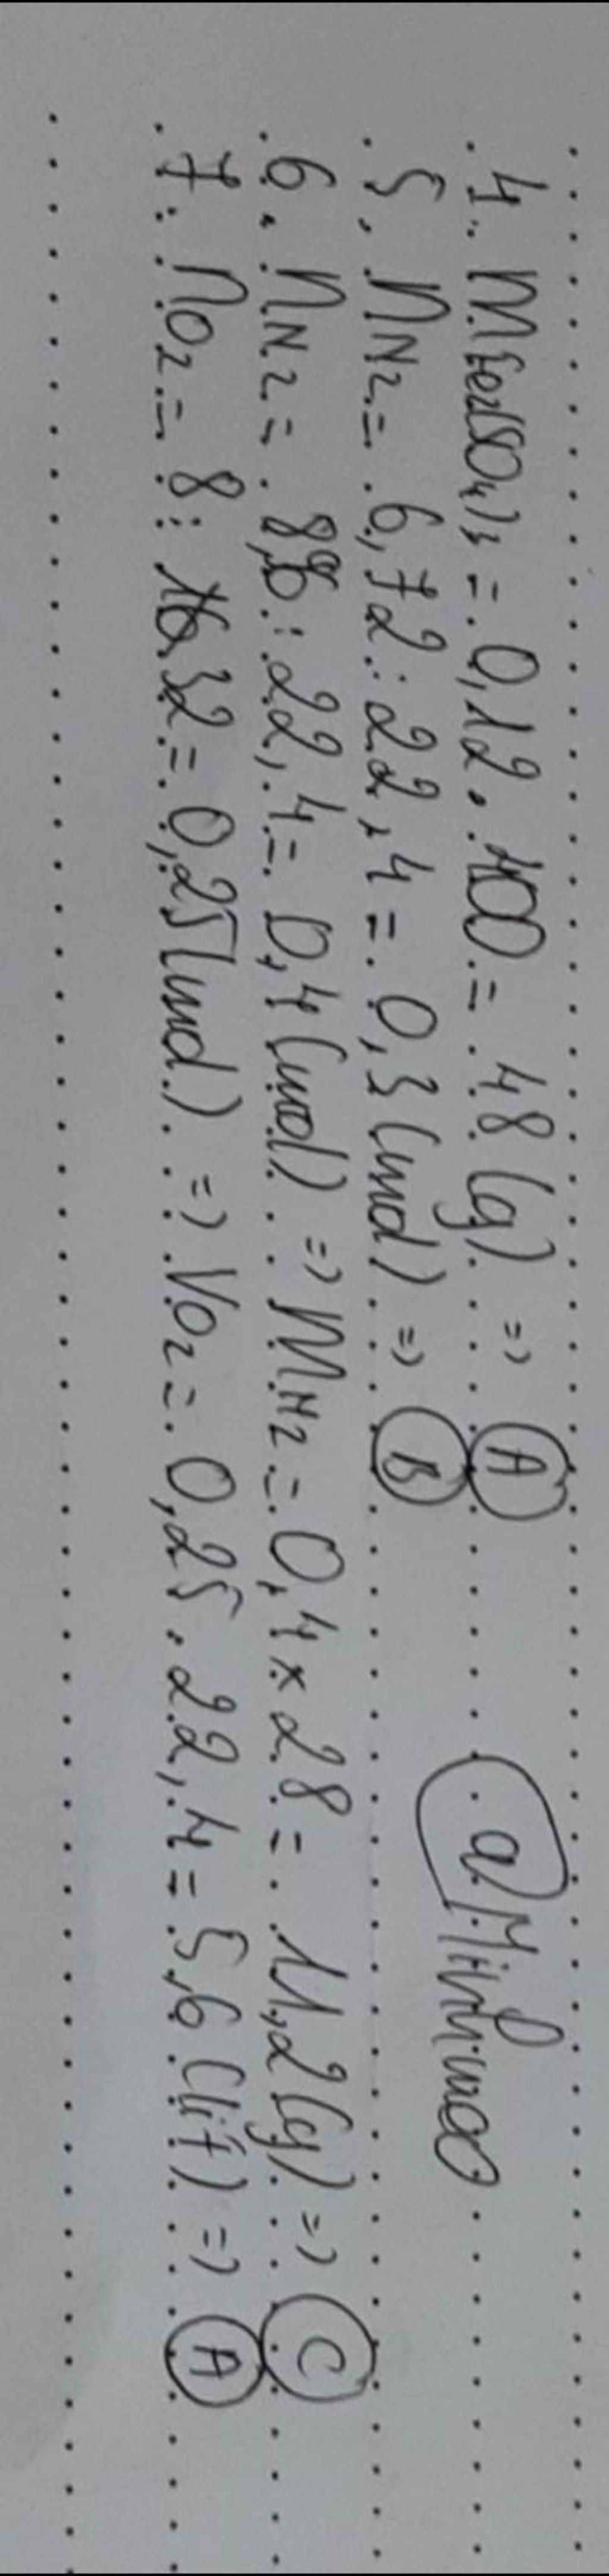 4. mFe2(SO4)3 = 0,12 . 400 = 48 (g) => A
5. nN2 = 6,72 : 22,4 = 0,3 (mol) => B
@Minhmoo
6. nN2 = 8,96 : 22,4 = 0,4 (mol) => mN2 = 0,4 x 28 = 11,2 (g) => C
7. nO2 = 8 : 32 = 0,25 (mol) => VO2 = 0,25 . 22,4 = 5,6 (lít) => A